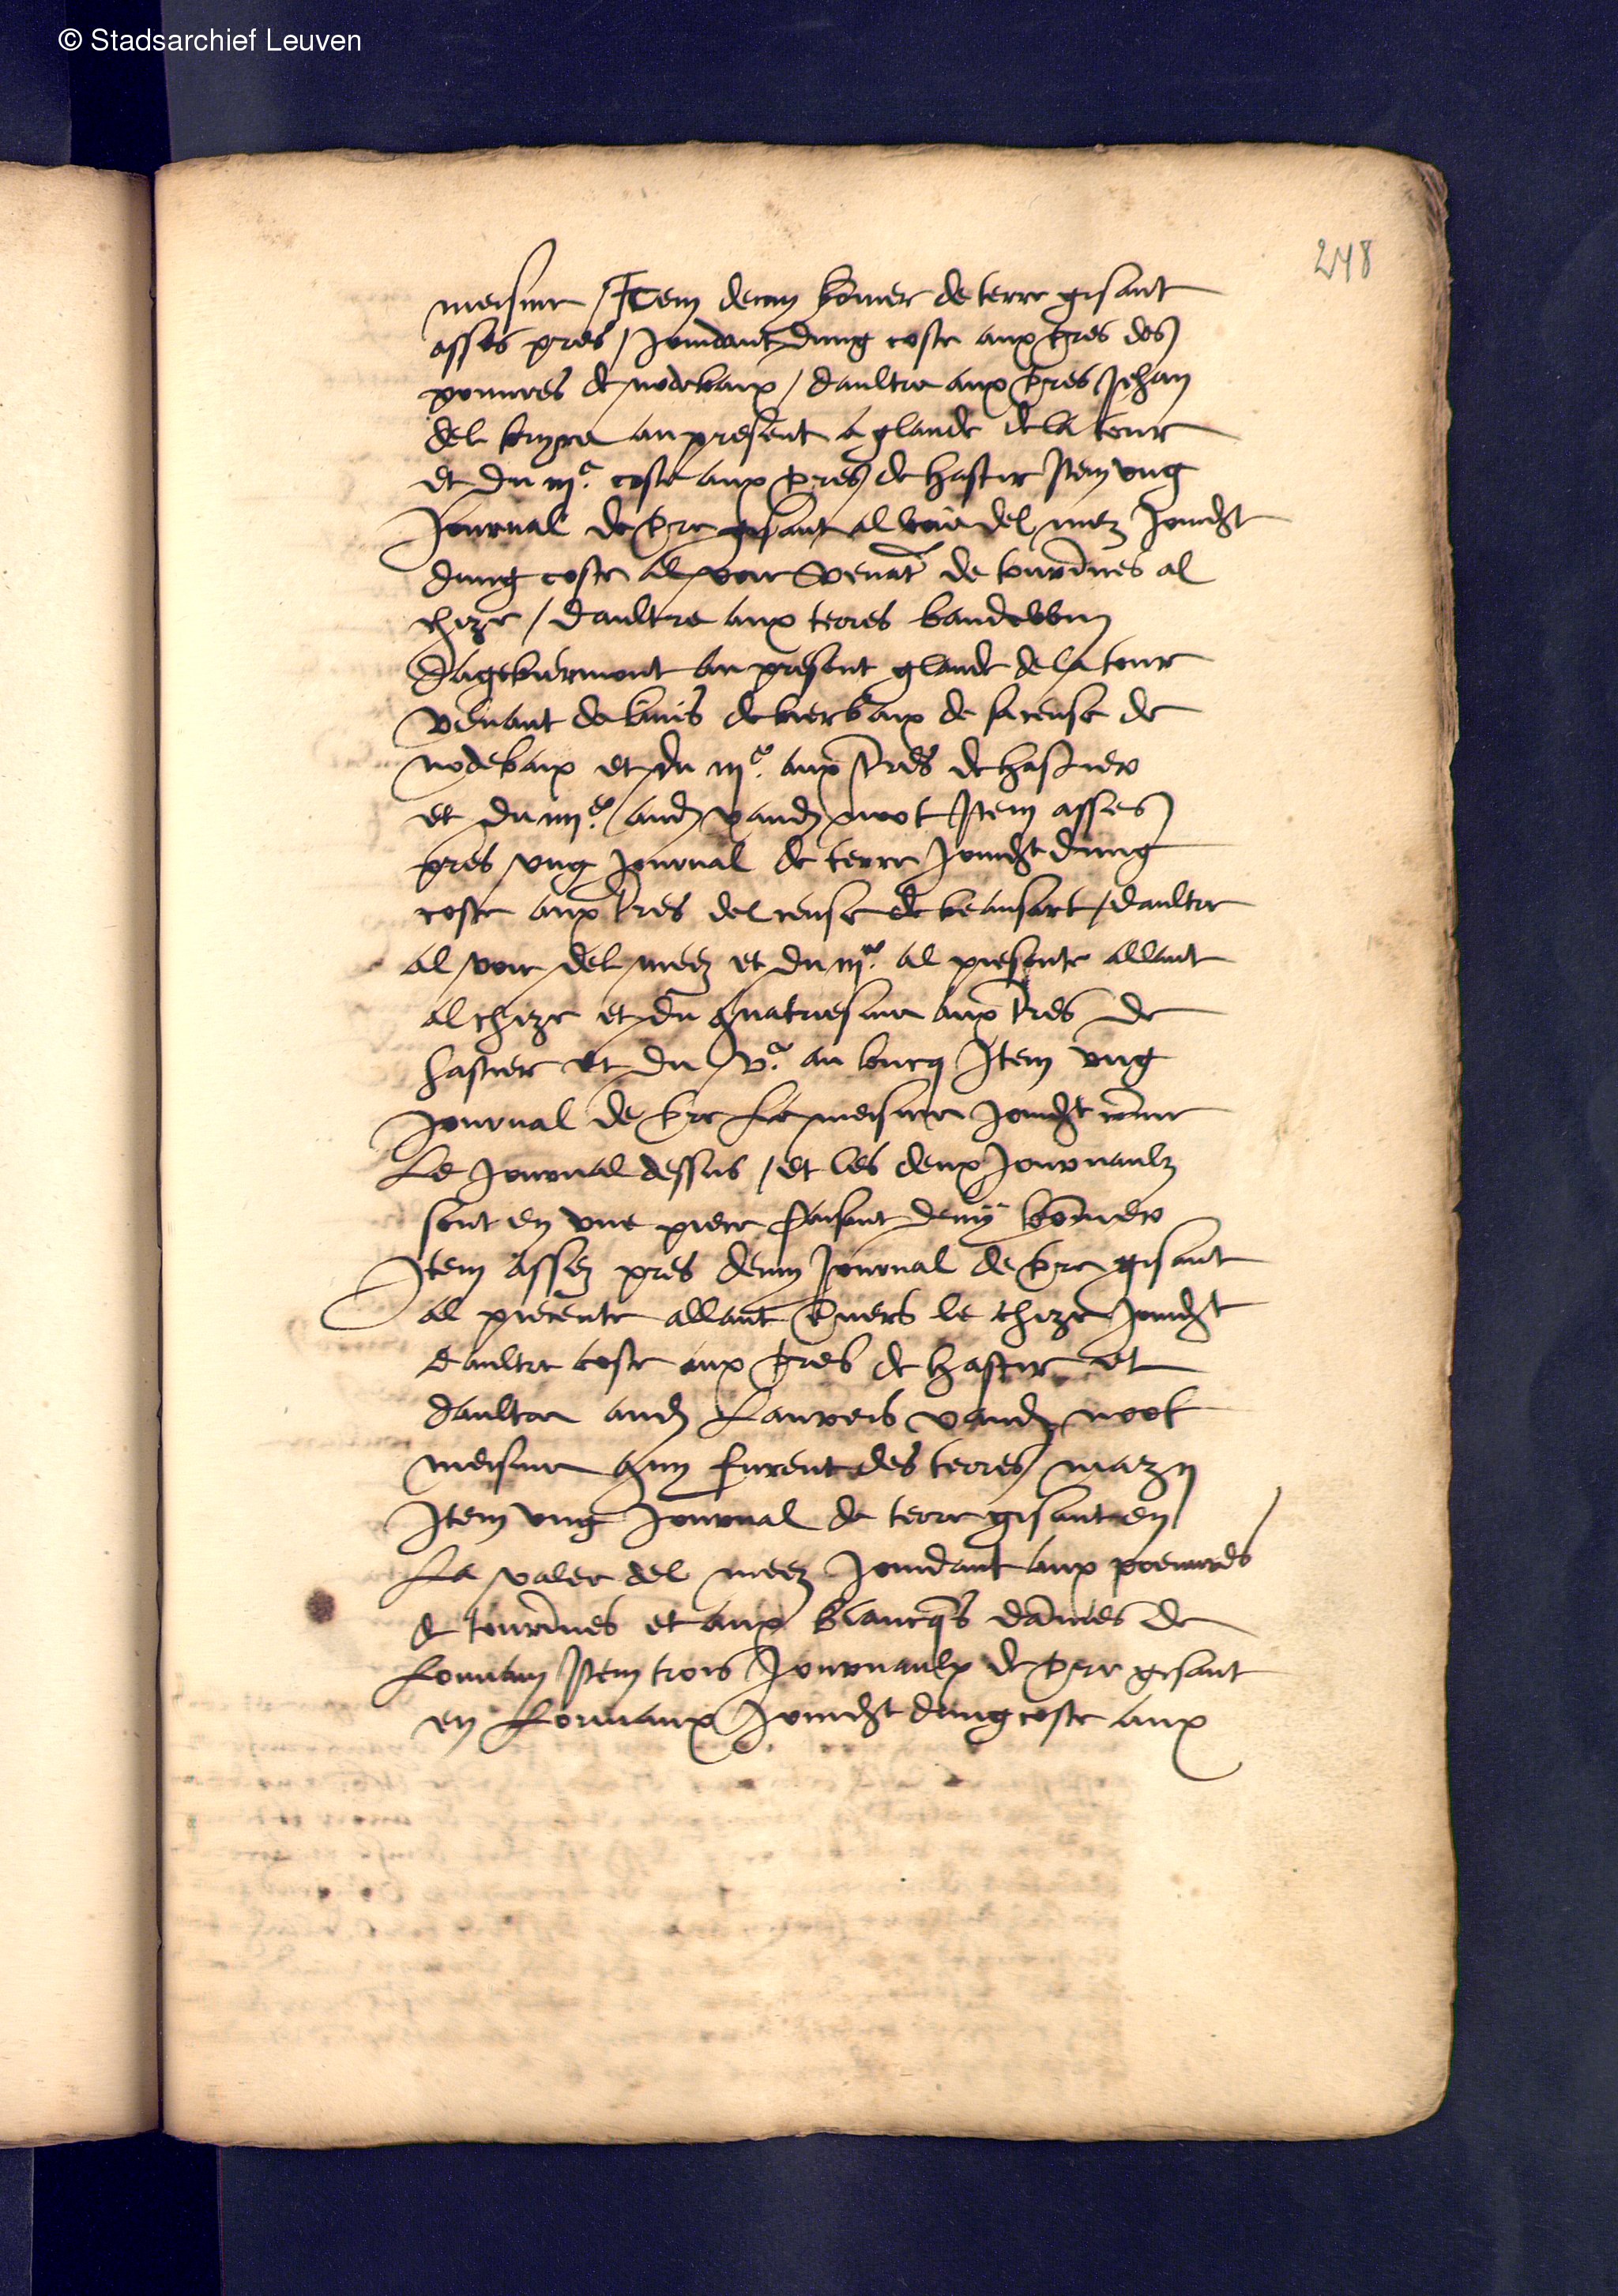 © Stadsarchief Leuven
248
meisme / Item demy bonier de terre gisant
asses pres / joindant dung coste aux tres des
pouvres de nodebaix / daultre aux tres Jehan
del bruyre au present a glaude de la tour
et du iije coste aux tres de hastir Item ung
Journal de tre gisant al voie del mez joindat
dung coste al voie venat de tourines al
chize / daultre aux terres baudewin
au present glaude de la tour
venant de de sa cense de
nodebaix et du iije aux tres de hastier
et du iiije andr vanden noot Item asses
pres ung Journal de terre joindat dung
coste aux tres del cense de beausart / daultre
al voie del meez et du iije al piesente allant
al chize et du quatriesme aux tres de
hastier et du ve au bucq Item ung
Journal de tre la meisme joindat come
le Journal dessus / et les deux Journaulz
sont en une piece faisant demy bonier
Item assez pres demy Journal de tre gisant
al piecente allant vers le chize joindat
daultre coste aux tres de hastir et
daultre andr Laureis vanden noot
meisme quy furent des terres
Item ung Journal de terre gisant en
la valee del meez joindant aux
de tourines et aux blancqs dames de
Louvain Item trois Journaulx de tre gisant
en joindat dung coste aux